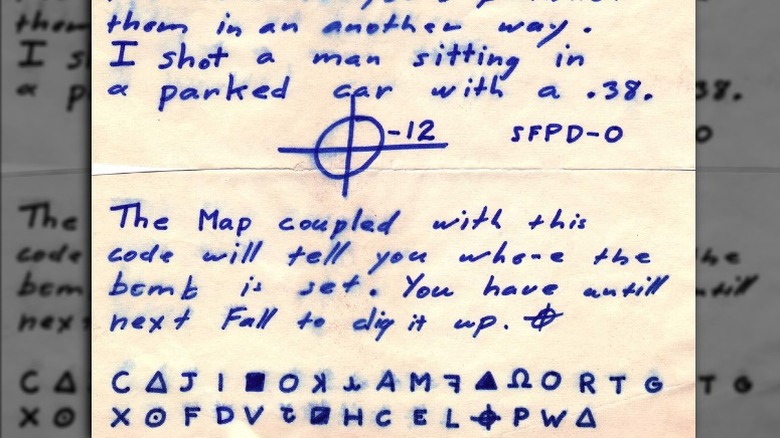 them in an another way.
I shot a man sitting in
a parked car with a .38.
-12 SFPD-0
The Map coupled with this
code will tell you where the
bomb is set. You have untill
next Fall to dig it up. ⌖
C Δ J I ■ O ꓘ ⅄ A M ꟻ ▲ Ω O R T G
X ⊙ F D V ⱻ ◪ H C E L ⌖ P W Δ